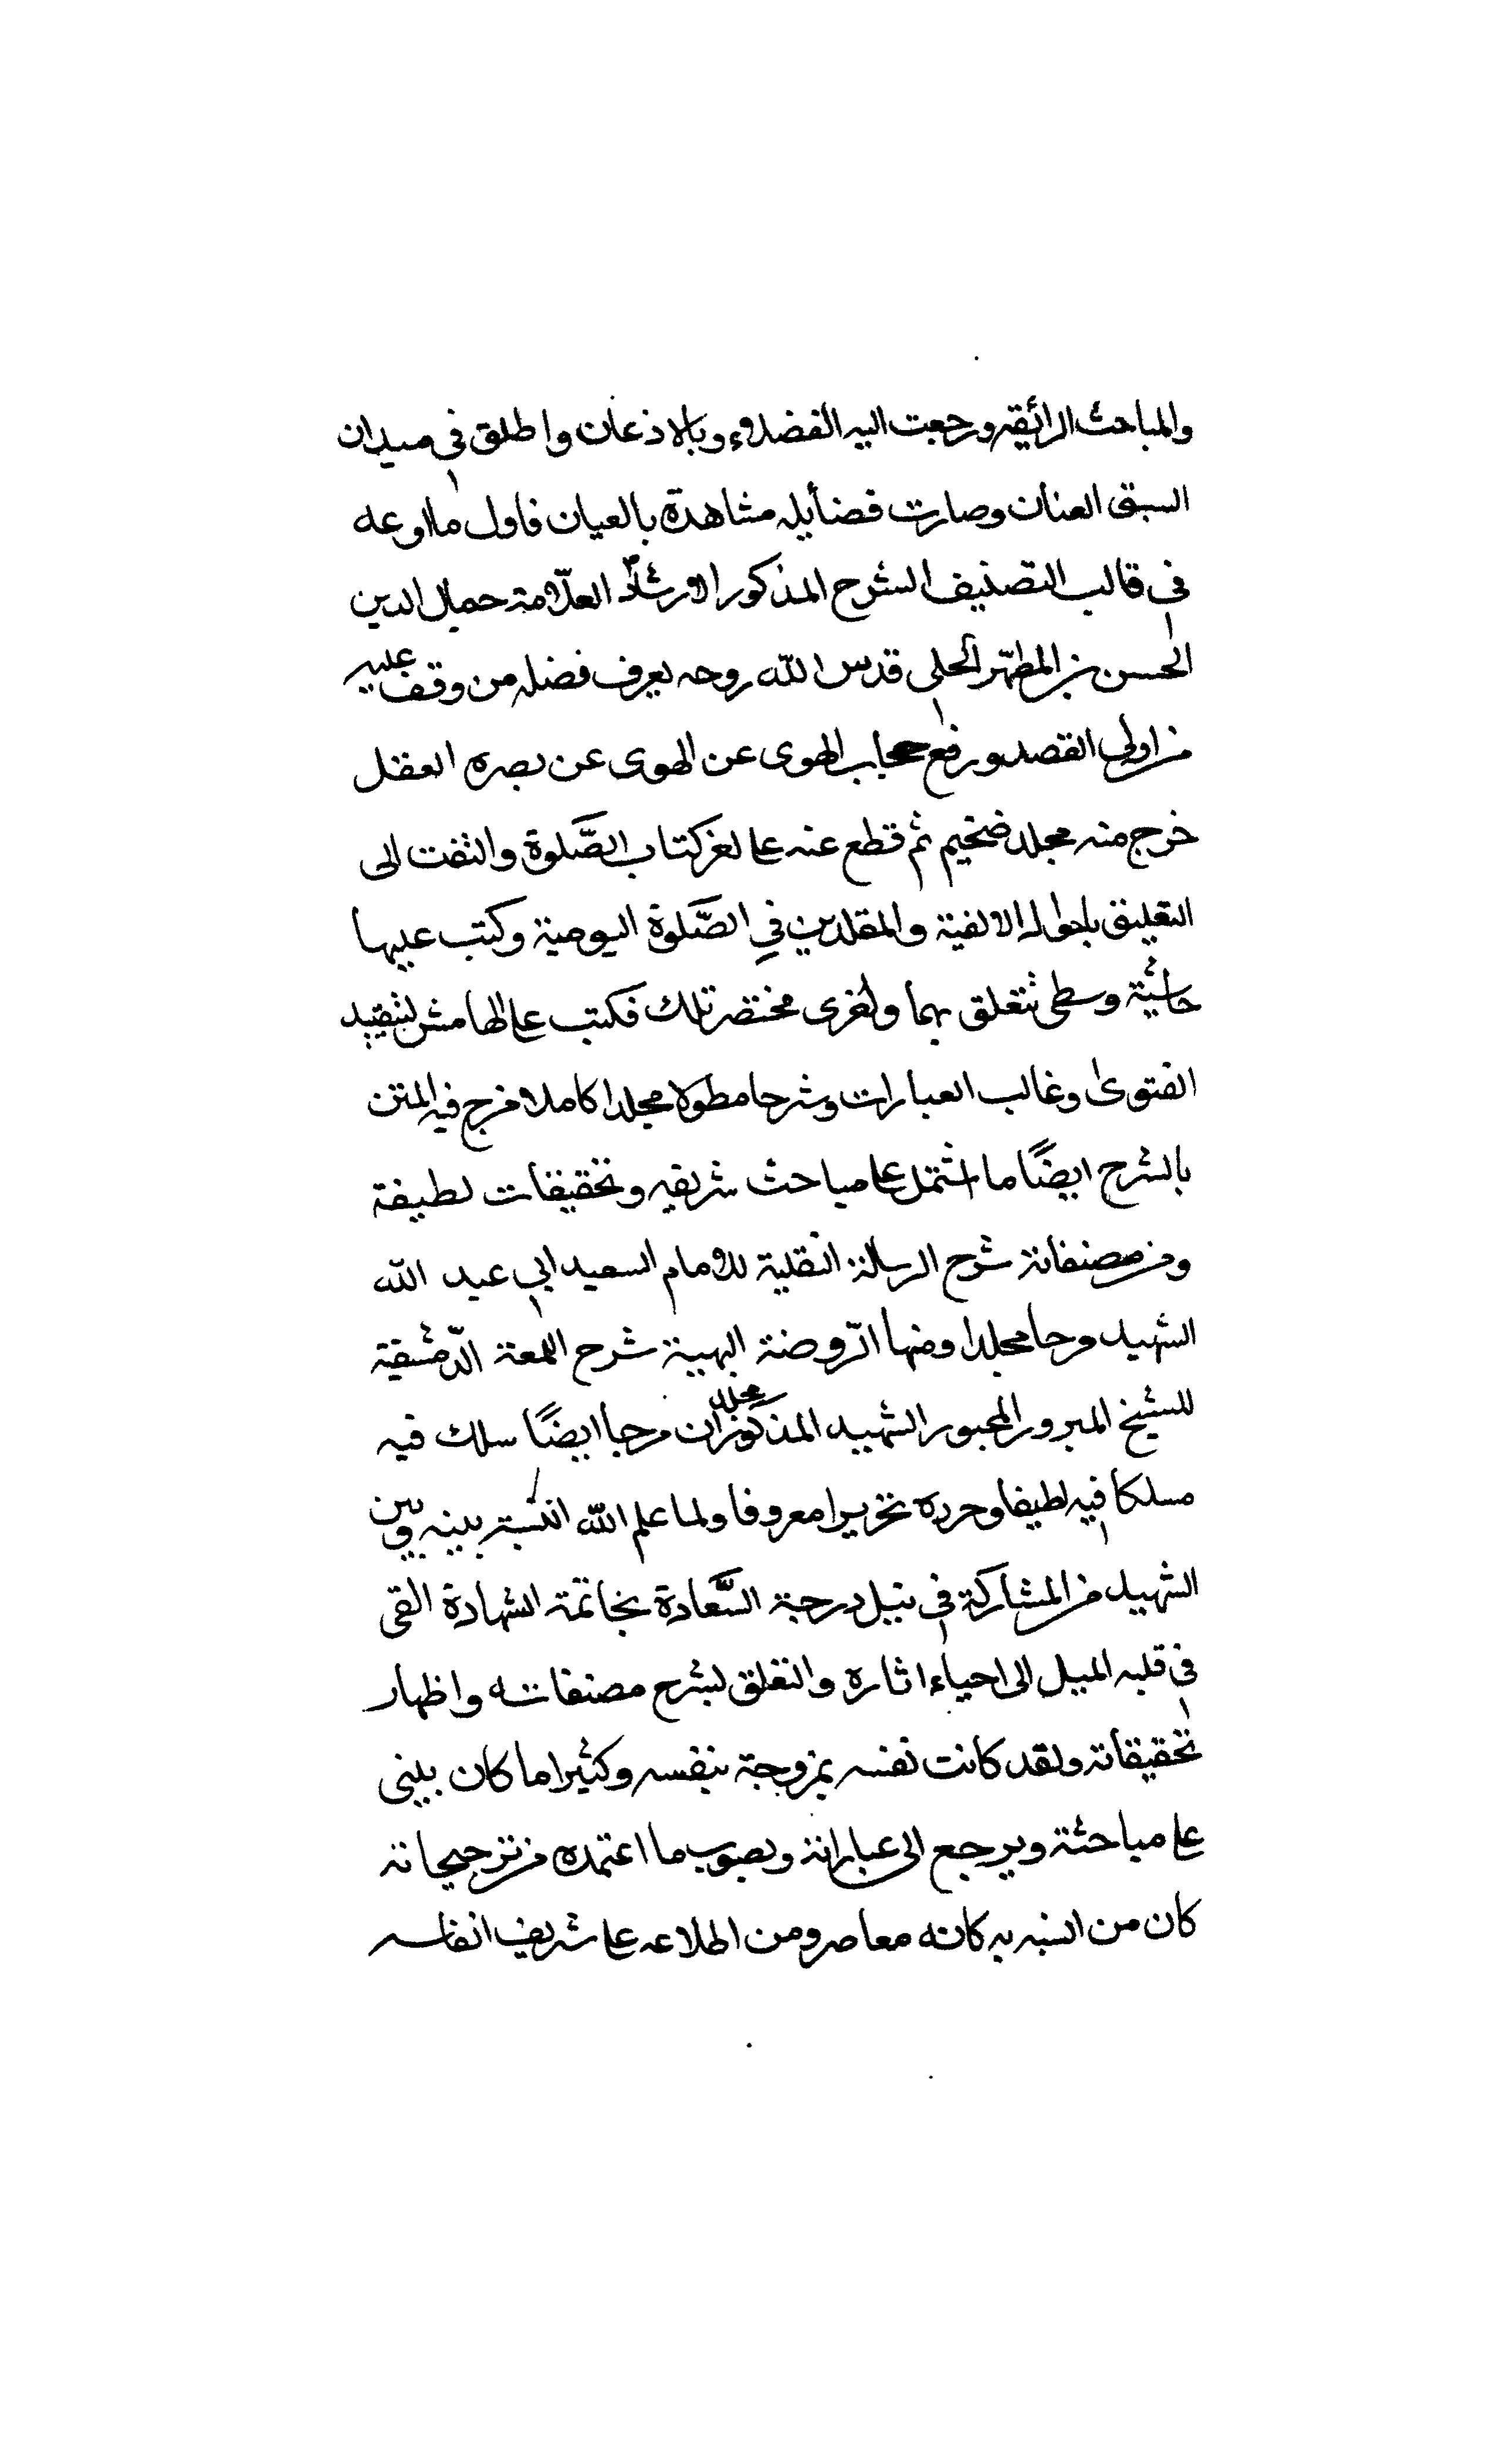 والمباحث الرائيقه ورجعت اليه الفضلاء وبالاذعان واطلق في ميدان
السبق العنان وصارت فضايله مشاهدة بالعيان فاول ما اوعه
في قالب التصنيف الشرح المذكور الارشاد العلّامة جمال الدين
الحسن بن المطهّر الحلي قدس الله روحه يعرف فضله من وقف عليه
من اولي القصد ورفع حجاب الهوى عن الهوى عن بصره العقل
خرج منه مجلد ضخيم ثم قطع عنه على كتاب الصَّلوة والتفت الى
التعليق الالفية والمقلدين في الصَّلوة اليومية وكتب عليها
حاشية وسطى تتعلق بهما ولغرى مختصر تلك فكتب على الهامش لتقييد
الفتوى وغالب العبارات وشرحا مطولا مجلدا كاملا مزج فيه المتن
بالشرح ايضًا ما اشتمل على مباحث شريفه وتحقيقات لطيفة
ومن مصنفاته شرح الرسالة النقلية للامام السعيد ابي عبد الله
الشهيد مزجا مجلدا ومنها الرّوضة البهية شرح اللمعة الدّمشقية
للشيخ المبرور المحبور الشهيد المذكور مجلدان مزجا ايضًا سلك فيه
مسلكا فيه لطيفا وحرره تحريرا معروفا ولما علم الله النسبة بينه وبين
الشهيد من المشاركة في نيل درجة السَّعادة بخاتمة الشهادة القى
في قلبه الميل الى احياء اثاره والتعلق بشرح مصنفاته واظهار
تحقيقاته ولقد كانت نفسه ممزوجة بنفسه وكثيرا ما كان يبني
على مباحثة ويرجع الى عباراته ويصوب ما اعتمده من ترجيحاته
كان من انسه به كانه معاصر ومن اطلاعه على شريف انفاسه